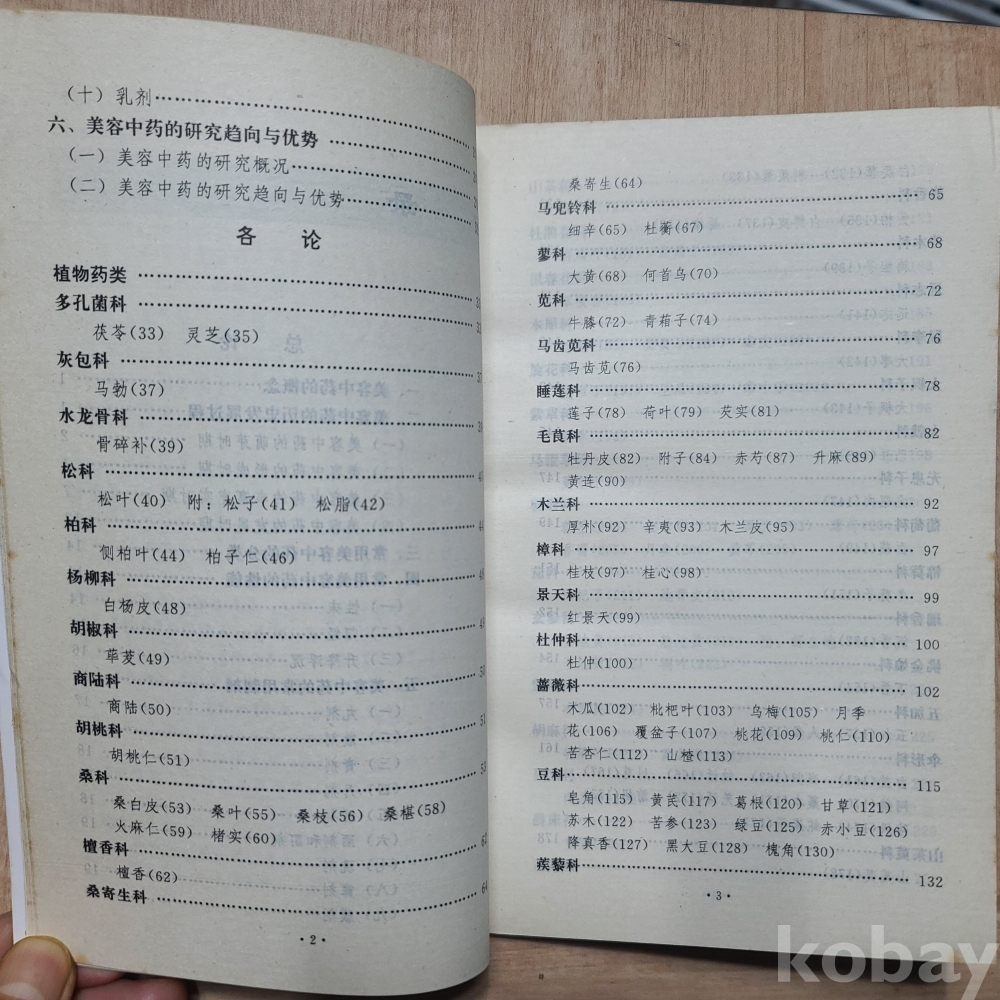 （十）乳剂
六、美容中药的研究趋向与优势
（一）美容中药的研究概况
（二）美容中药的研究趋向与优势
各 论
植物药类
多孔菌科
茯苓(33) 灵芝(35)
灰包科
马勃(37)
水龙骨科
骨碎补(39)
松科
松叶(40) 附：松子(41) 松脂(42)
柏科
侧柏叶(44) 柏子仁(46)
杨柳科
白杨皮(48)
胡椒科
荜茇(49)
商陆科
商陆(50)
胡桃科
胡桃仁(51)
桑科
桑白皮(53) 桑叶(55) 桑枝(56) 桑椹(58)
火麻仁(59) 楮实(60)
檀香科
檀香(62)
桑寄生科
·2·
桑寄生(64)
马兜铃科 65
细辛(65) 杜蘅(67)
蓼科 68
大黄(68) 何首乌(70)
苋科 72
牛膝(72) 青葙子(74)
马齿苋科 76
马齿苋(76)
睡莲科 78
莲子(78) 荷叶(79) 芡实(81)
毛茛科 82
牡丹皮(82) 附子(84) 赤芍(87) 升麻(89)
黄连(90)
木兰科 92
厚朴(92) 辛夷(93) 木兰皮(95)
樟科 97
桂枝(97) 桂心(98)
景天科 99
红景天(99)
杜仲科 100
杜仲(100)
蔷薇科 102
木瓜(102) 枇杷叶(103) 乌梅(105) 月季
花(106) 覆盆子(107) 桃花(109) 桃仁(110)
苦杏仁(112) 山楂(113)
豆科 115
皂角(115) 黄芪(117) 葛根(120) 甘草(121)
苏木(122) 苦参(123) 绿豆(125) 赤小豆(126)
降真香(127) 黑大豆(128) 槐角(130)
蒺藜科 132
·3·
kobay